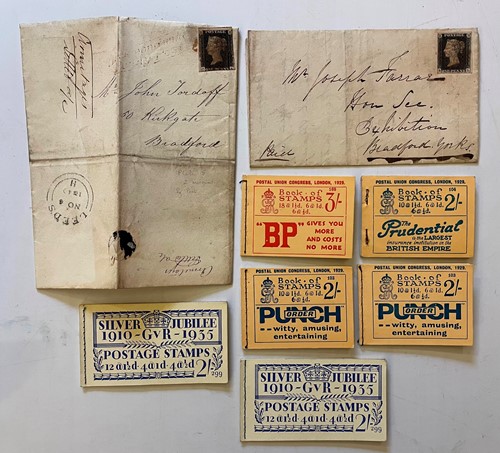 Mr John Tordoff
Kirkgate
Bradford
LEEDS
NO
H
Mr Joseph Farrar
Hon Sec.
Exhibition
Bradford Yorks
Paid
POSTAL UNION CONGRESS, LONDON, 1929.
Book of
STAMPS 3/-
18@1½d. 6@1d.
6@½d.
"BP" GIVES YOU
MORE
AND COSTS
NO MORE
POSTAL UNION CONGRESS, LONDON, 1929.
Book of
STAMPS 2/-
10@1½d. 6@1d.
6@½d.
The Prudential
is the LARGEST
insurance institution in the
BRITISH EMPIRE
POSTAL UNION CONGRESS, LONDON, 1929.
Book of
STAMPS 2/-
10@1½d. 6@1d.
6@½d.
ORDER
PUNCH
--witty, amusing,
entertaining
POSTAL UNION CONGRESS, LONDON, 1929.
Book of
STAMPS 2/-
10@1½d. 6@1d.
6@½d.
ORDER
PUNCH
--witty, amusing,
entertaining
SILVER JUBILEE
1910-GVR-1935
POSTAGE STAMPS
12@1½d·4@1d·4@½d 2/-
299
SILVER JUBILEE
1910-GVR-1935
POSTAGE STAMPS
12@1½d·4@1d·4@½d 2/-
299